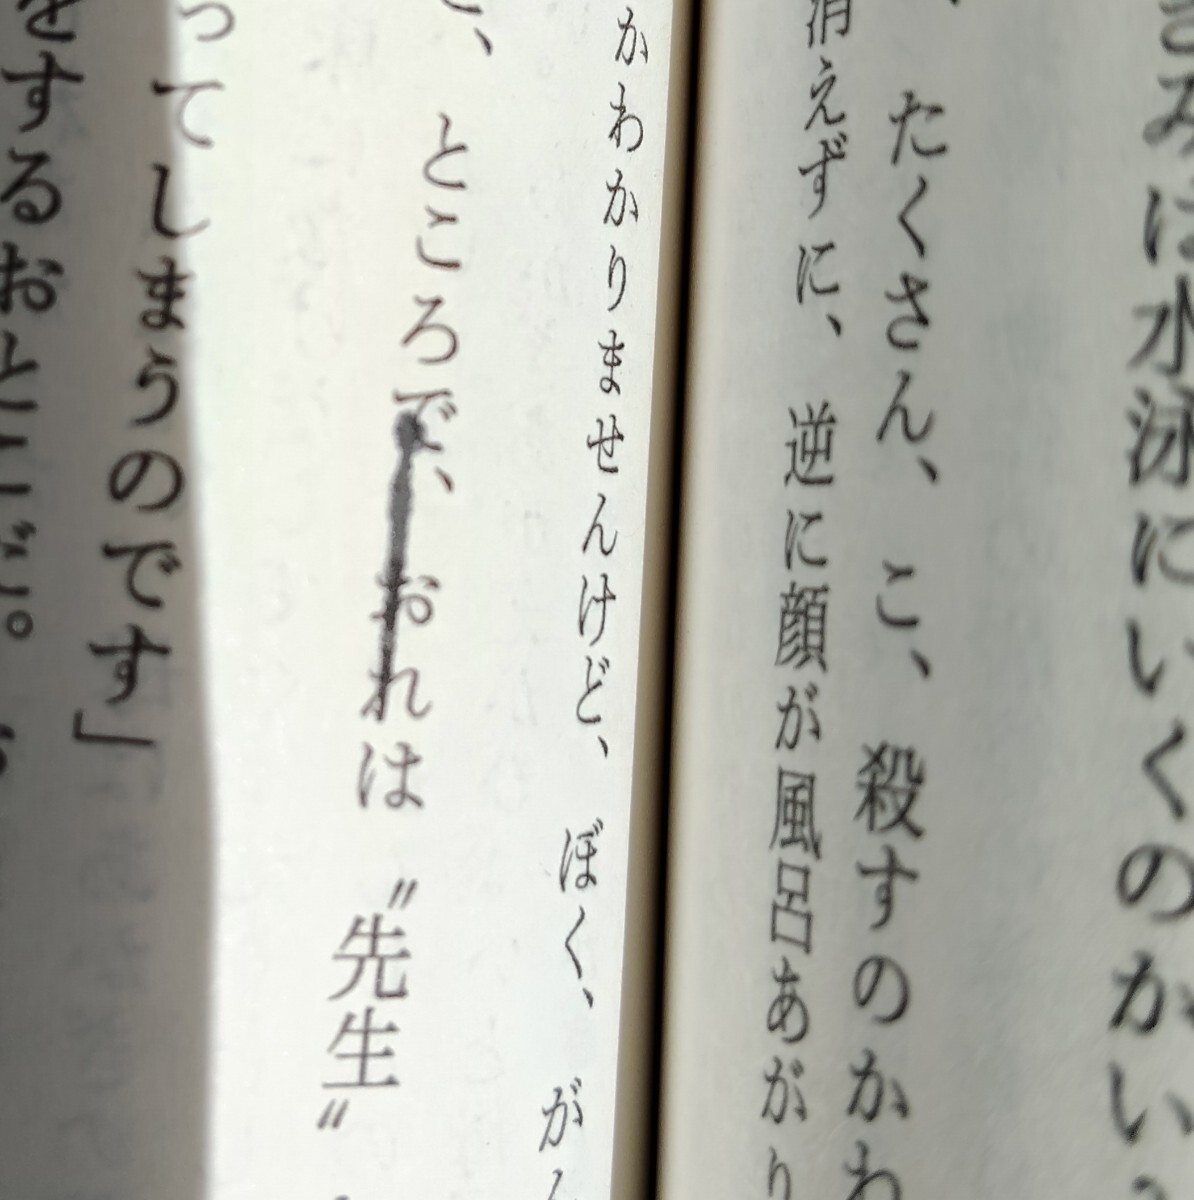 きみは水泳にいくのかい
たくさん、こ、殺すのかわ
消えずに、逆に顔が風呂あがり
かわかりませんけど、ぼく、が
ところで、おれは〝先生〟
ってしまうのです」
をするおとこだ。